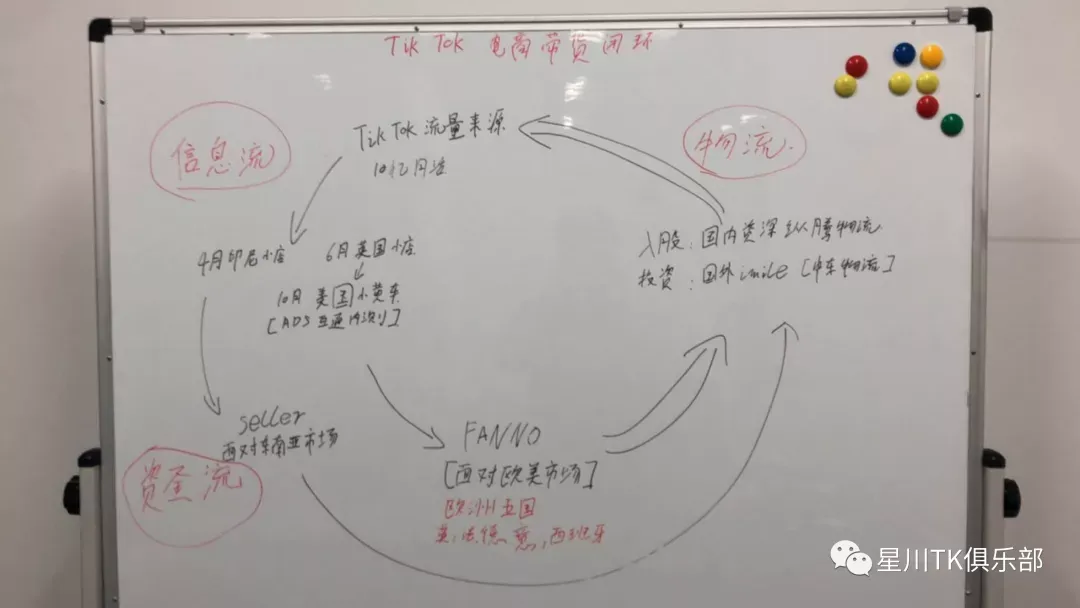 TikTok 电商带货闭环
TikTok 流量来源
10亿月活
信息流
物流
4月印尼小店
6月英国小店
10月 美国小黄车
[ADS 互通内测]
入股:国内资深纵腾物流
投资:国外imile [中东物流]
seller
面对东南亚市场
FANNO
[面对欧美市场]
欧洲五国
英,法,德,意,西班牙
资金流
星川TK俱乐部